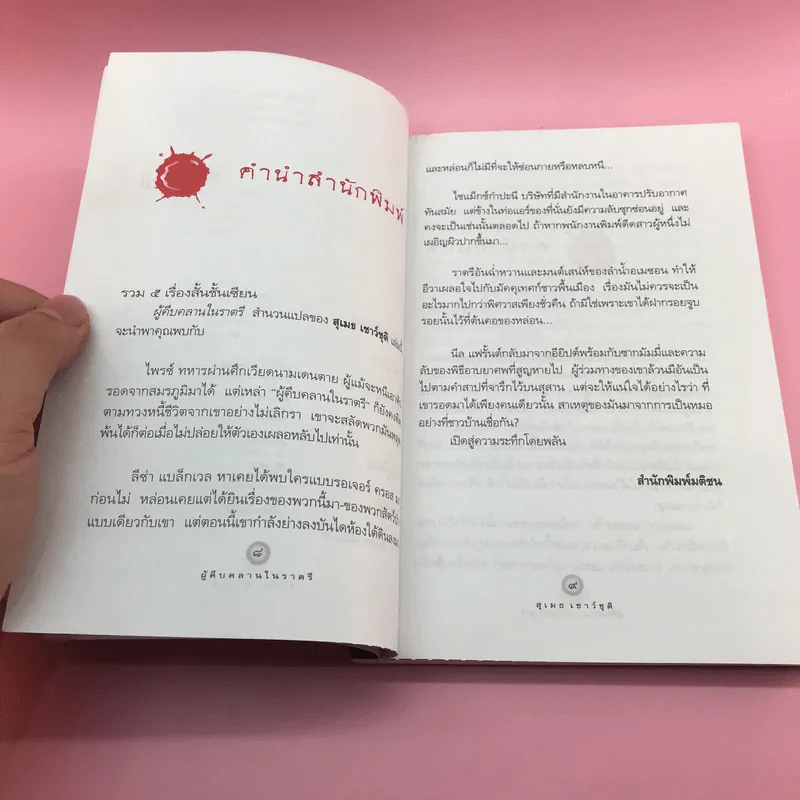 คำนำสำนักพิมพ์
รวม ๕ เรื่องสั้นชั้นเซียน
ผู้คืบคลานในราตรี สำนวนแปลของ สุเมธ เชาว์ชุติ เล่มนี้
จะนำพาคุณพบกับ
ไพรซ์ ทหารผ่านศึกเวียดนามเดนตาย ผู้แม้จะหนีเอาตัว
รอดจากสมรภูมิมาได้ แต่เหล่า “ผู้คืบคลานในราตรี” ก็ยังคง
ตามทวงหนี้ชีวิตจากเขาอย่างไม่เลิกรา เขาจะสลัดพวกมัน
พ้นได้ก็ต่อเมื่อไม่ปล่อยให้ตัวเองเผลอหลับไปเท่านั้น
ลีซ่า แบล็กเวล หาเคยได้พบใครแบบรอเจอร์ ครอส มา
ก่อนไม่ หล่อนเคยแต่ได้ยินเรื่องของพวกนี้มา-ของพวกสัตว์
แบบเดียวกับเขา แต่ตอนนี้เขากำลังย่างลงบันไดห้องใต้ดิน
๘
ผู้คืบคลานในราตรี
และหล่อนก็ไม่มีที่จะให้ซ่อนกายหรือหลบหนี...
ไซแม็กซ์กำปะนี บริษัทที่มีสำนักงานในอาคารปรับอากาศ
ทันสมัย แต่ข้างในท่อแอร์ของที่นั่นยังมีความลับซุกซ่อนอยู่ และ
คงจะเป็นเช่นนั้นตลอดไป ถ้าหากพนักงานพิมพ์ดีดสาวผู้หนึ่งไม่
เผอิญผิวปากขึ้นมา...
ราตรีอันฉ่ำหวานและมนต์เสน่ห์ของลำน้ำอเมซอน ทำให้
อีวาเผลอใจไปกับมัคคุเทศก์ชาวพื้นเมือง เรื่องมันไม่ควรจะเป็น
อะไรมากไปกว่าพิศวาสเพียงชั่วคืน ถ้ามิใช่เพราะเขาได้ฝากรอยจูบ
รอยนั้นไว้ที่ต้นคอของหล่อน...
นีล แฟรันต์กลับมาจากอียิปต์พร้อมกับซากมัมมี่และความ
ลับของพิธีอาบยาศพที่สูญหายไป ผู้ร่วมทางของเขาล้วนมีอันเป็น
ไปตามคำสาปที่จารึกไว้บนสุสาน แต่จะให้แน่ใจได้อย่างไรว่า ที่
เขารอดมาได้เพียงคนเดียวนั้น สาเหตุของมันมาจากการเป็นหมอ
อย่างที่ชาวบ้านเชื่อกัน?
เปิดสู่ความระทึกโดยพลัน
สำนักพิมพ์มติชน
๙
สุเมธ เชาว์ชุติ